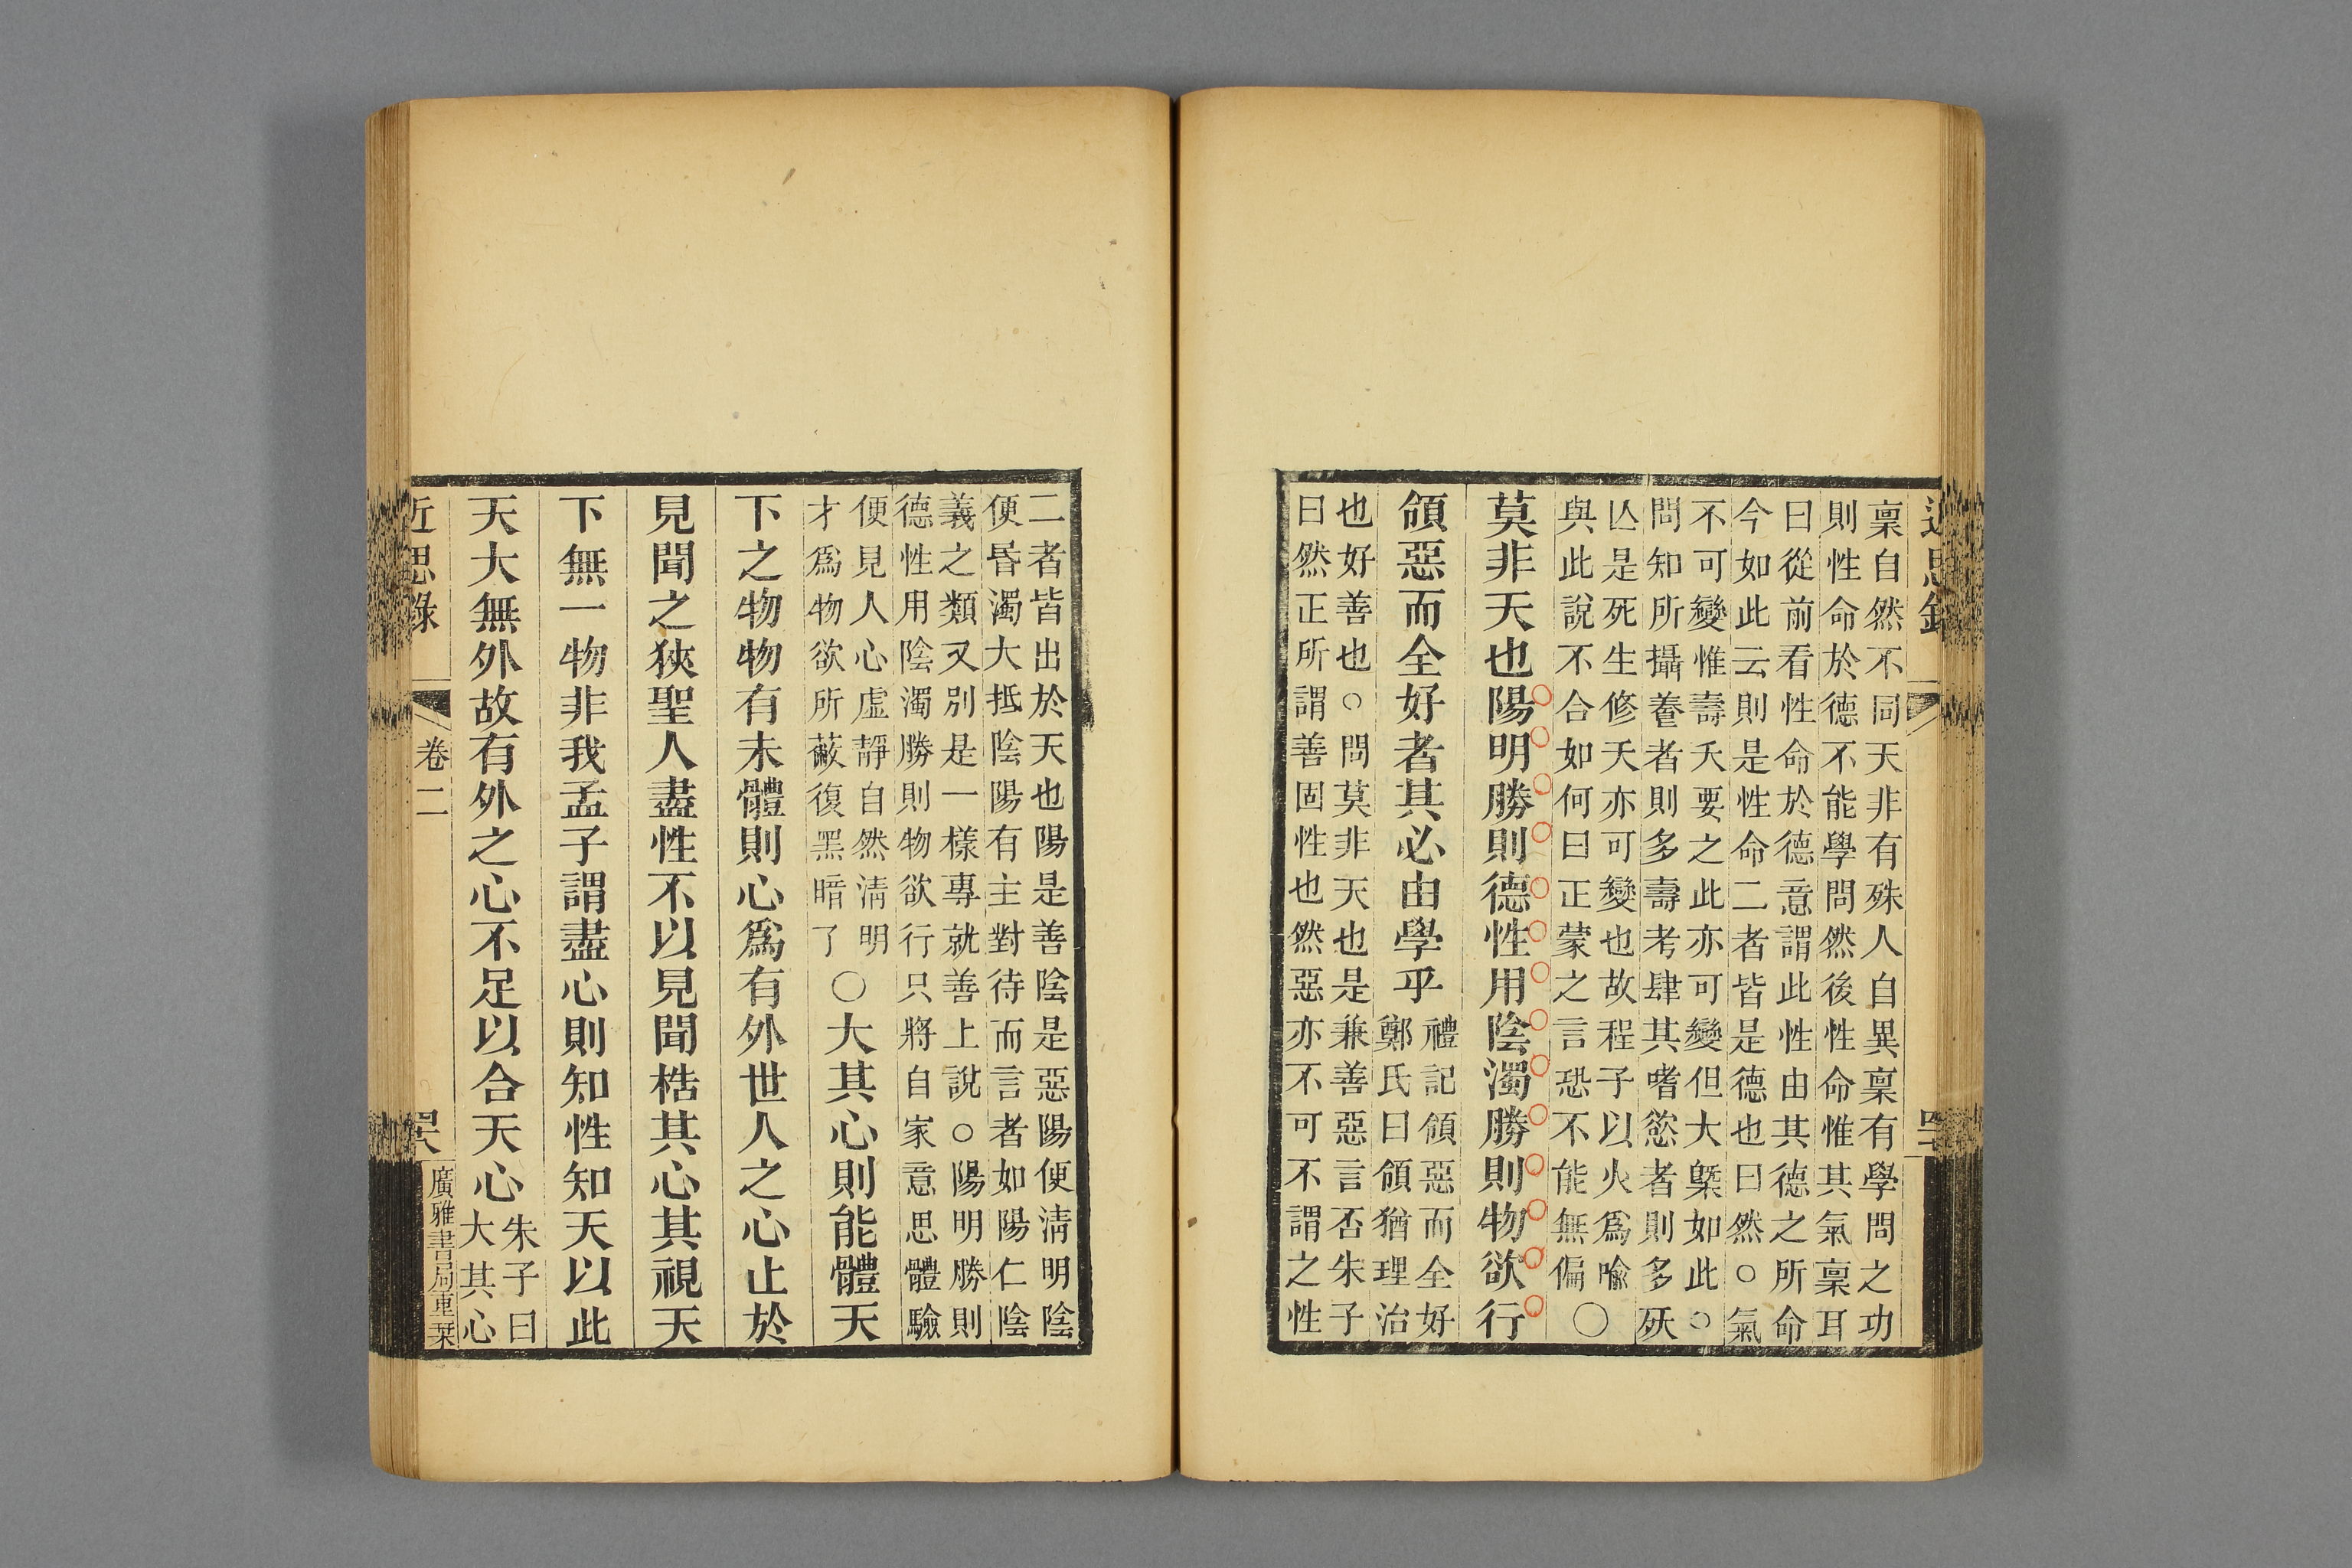 稟自然不同天非有殊人自異稟有學問之功
則性命於德不能學問然後性命惟其氣稟耳
曰從前看性命於德意謂此性由其德之所命
今如此云則是性命二者皆是德也曰然○氣
不可變惟壽夭要之此亦可變但大槩如此○
問知所攝養者則多壽考肆其嗜慾者則多殀
亾是死生修夭亦可變也故程子以火爲喻
與此說不合如何曰正蒙之言恐不能無偏
○
莫非天也陽明勝則德性用陰濁勝則物欲行
領惡而全好者其必由學乎
禮記領惡而全好
鄭氏曰領猶理治
也好善也○問莫非天也是兼善惡言否朱子
曰然正所謂善固性也然惡亦不可不謂之性
二者皆出於天也陽是善陰是惡陽便淸明陰
便昏濁大抵陰陽有主對待而言者如陽仁陰
義之類又別是一樣專就善上說○陽明勝則
德性用陰濁勝則物欲行只將自家意思體驗
便見人心虛靜自然淸明
才爲物欲所蔽復黑暗了
○大其心則能體天
下之物物有未體則心爲有外世人之心止於
見聞之狹聖人盡性不以見聞梏其心其視天
下無一物非我孟子謂盡心則知性知天以此
天大無外故有外之心不足以合天心
朱子曰
大其心
近思錄
卷二
廣雅書局重栞